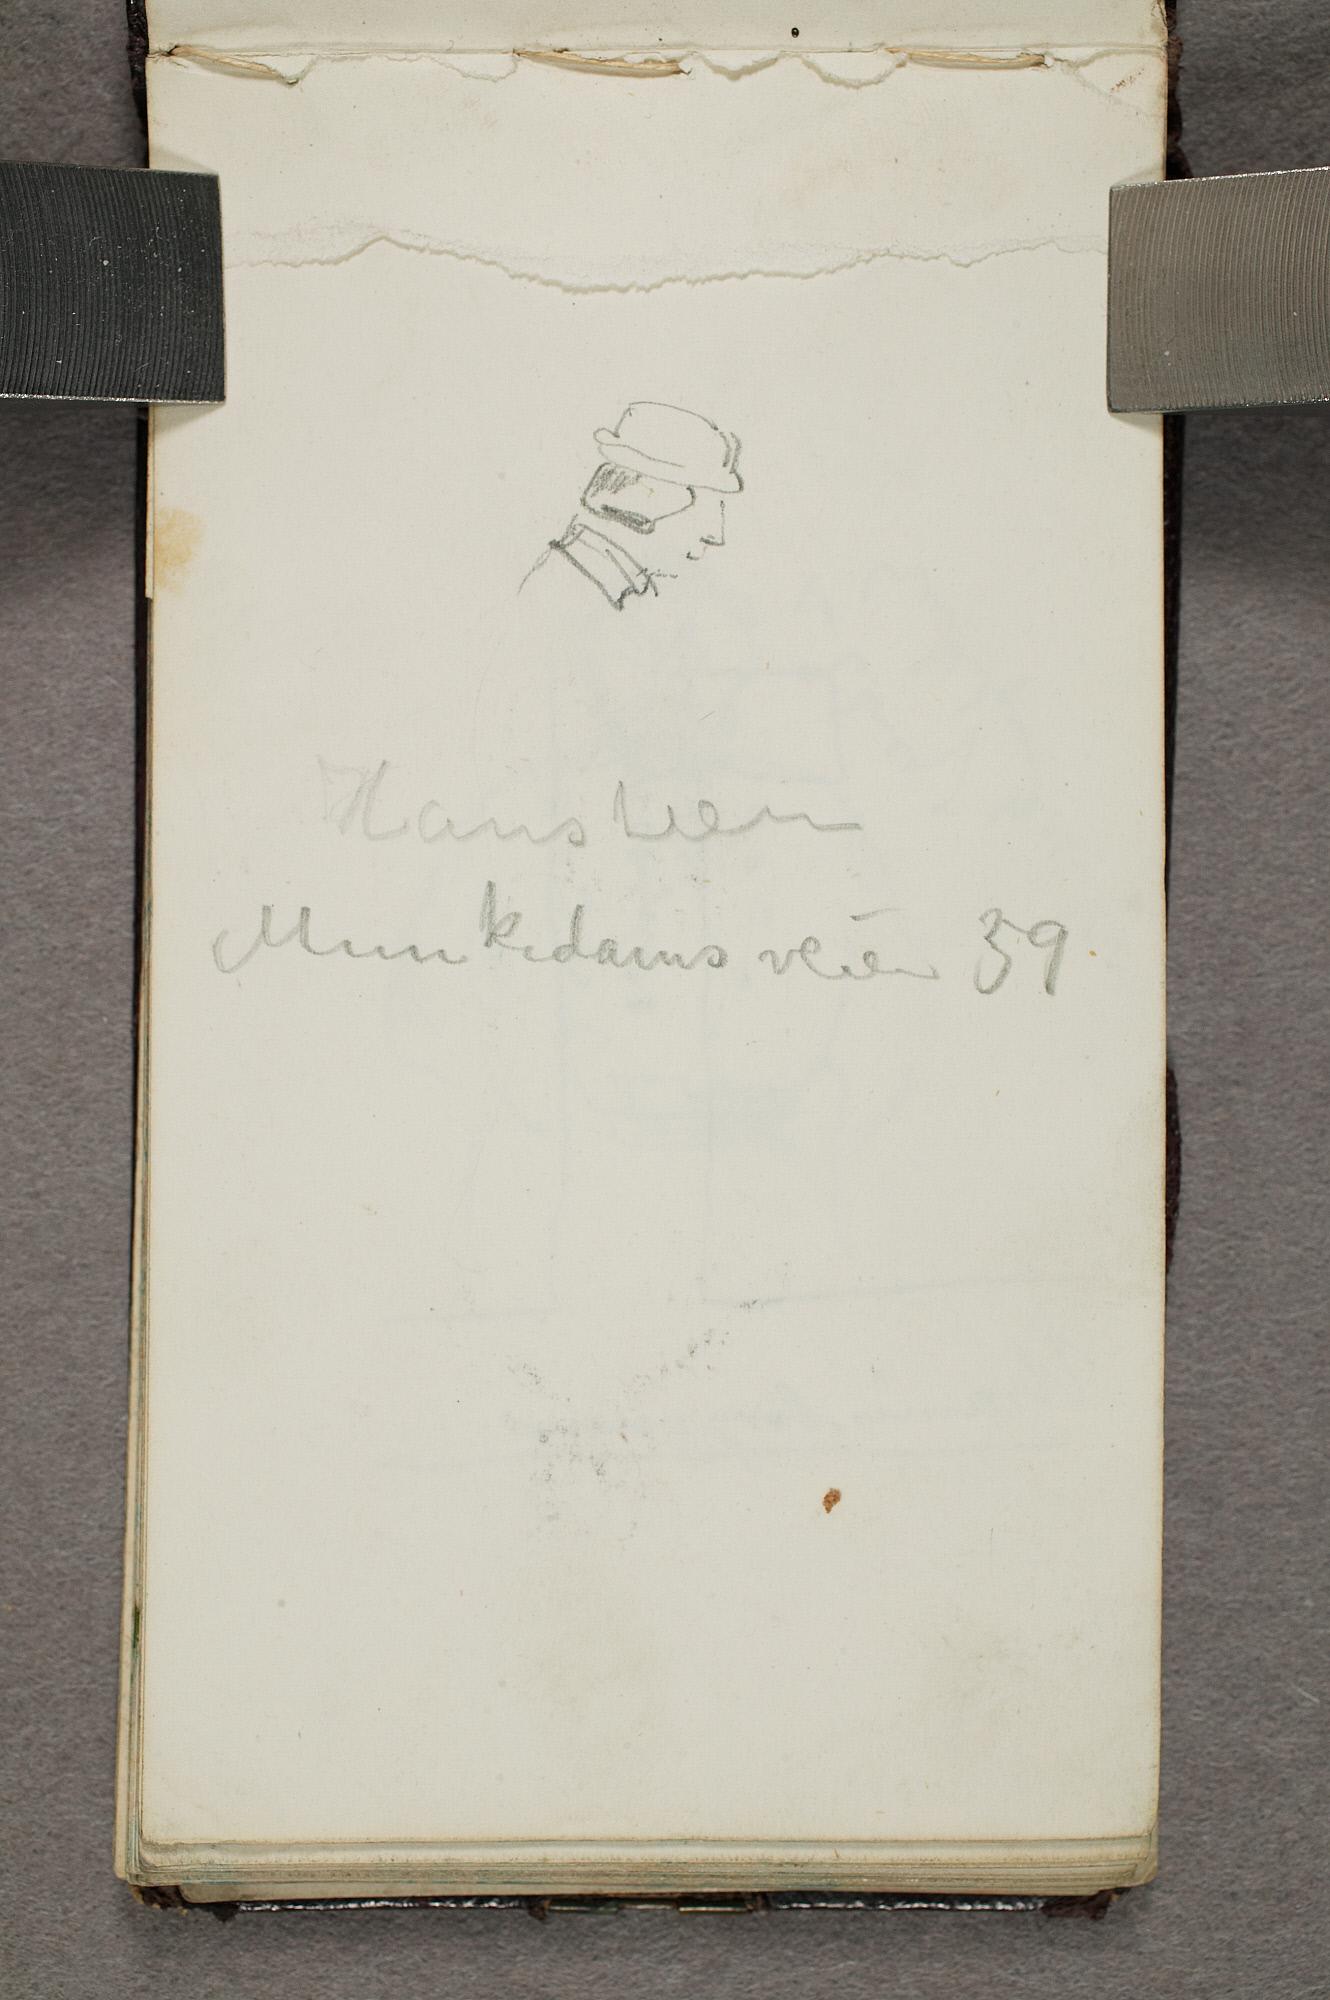 Hansteen
Munkedamsveien 39